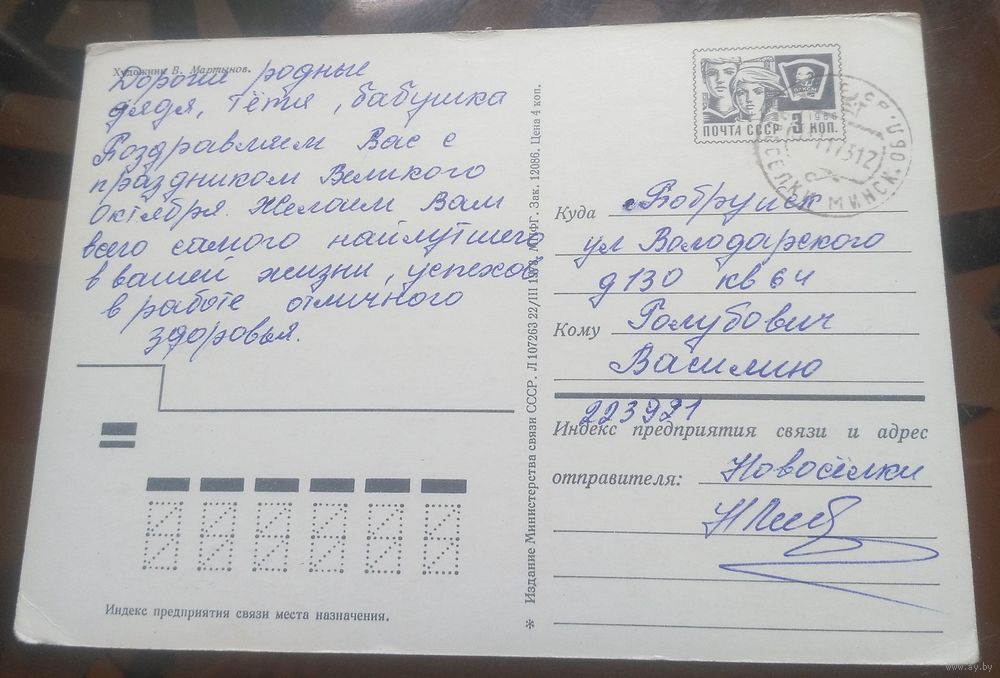 Художник В. Мартынов.
Дорогие родные
дядя, тётя, бабушка
Поздравляем Вас с
праздником Великого
Октября. Желаем Вам
всего самого найлутшего
в вашей жизни, успехов
в работе отличного
здоровья.
Индекс предприятия связи места назначения.
* Издание Министерства связи СССР. Л 107263 22/III 1973. МПФГ. Зак. 12086. Цена 4 коп.
1966
ПОЧТА СССР 3 КОП.
МИНСК. ОБЛ.
Куда г. Бобруйск
ул Володарского
д 130 кв 64
Кому Голубович
Василию
223921
Индекс предприятия связи и адрес
отправителя: Новосёлки
www.ay.by